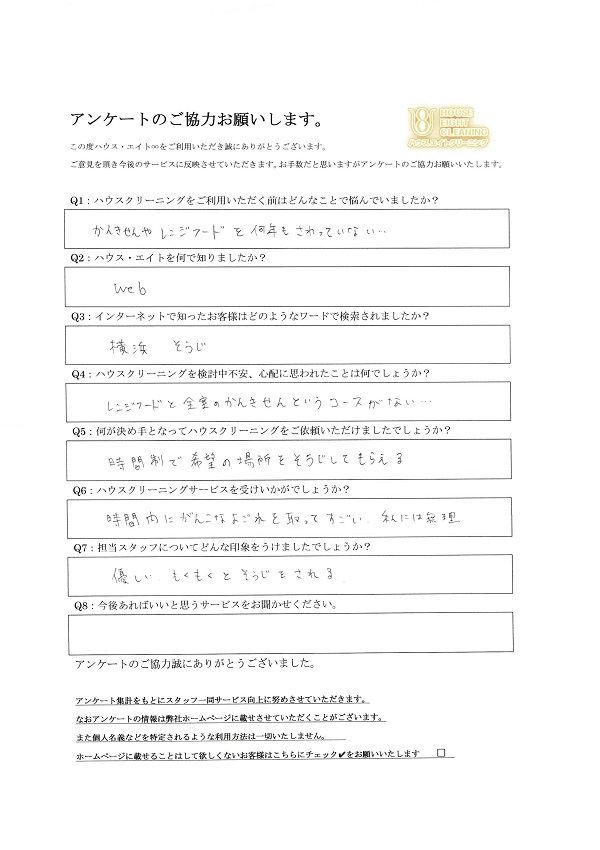 アンケートのご協力お願いします。
HOUSE
EIGHT
CLEANING
ハウスエイトクリーニング
この度ハウス・エイト∞をご利用いただき誠にありがとうございます。
ご意見を頂き今後のサービスに反映させていただきます。お手数だと思いますがアンケートのご協力お願いいたします。
Q1：ハウスクリーニングをご利用いただく前はどんなことで悩んでいましたか？
かんきせんやレンジフードを何年もさわっていない…
Q2：ハウス・エイトを何で知りましたか？
web
Q3：インターネットで知ったお客様はどのようなワードで検索されましたか？
横浜　そうじ
Q4：ハウスクリーニングを検討中不安、心配に思われたことは何でしょうか？
レンジフードと全室のかんきせんというコースがない…
Q5：何が決め手となってハウスクリーニングをご依頼いただけましたでしょうか？
時間制で希望の場所をそうじしてもらえる
Q6：ハウスクリーニングサービスを受けいかがでしょうか？
時間内にがんこなよごれを取ってすごい．私には無理
Q7：担当スタッフについてどんな印象をうけましたでしょうか？
優しい．もくもくとそうじをされる．
Q8：今後あればいいと思うサービスをお聞かせください。
アンケートのご協力誠にありがとうございました。
アンケート集計をもとにスタッフ一同サービス向上に努めさせていただきます。
なおアンケートの情報は弊社ホームページに載せさせていただくことがございます。
また個人名義などを特定されるような利用方法は一切いたしません。
ホームページに載せることはして欲しくないお客様はこちらにチェック✔をお願いいたします　□